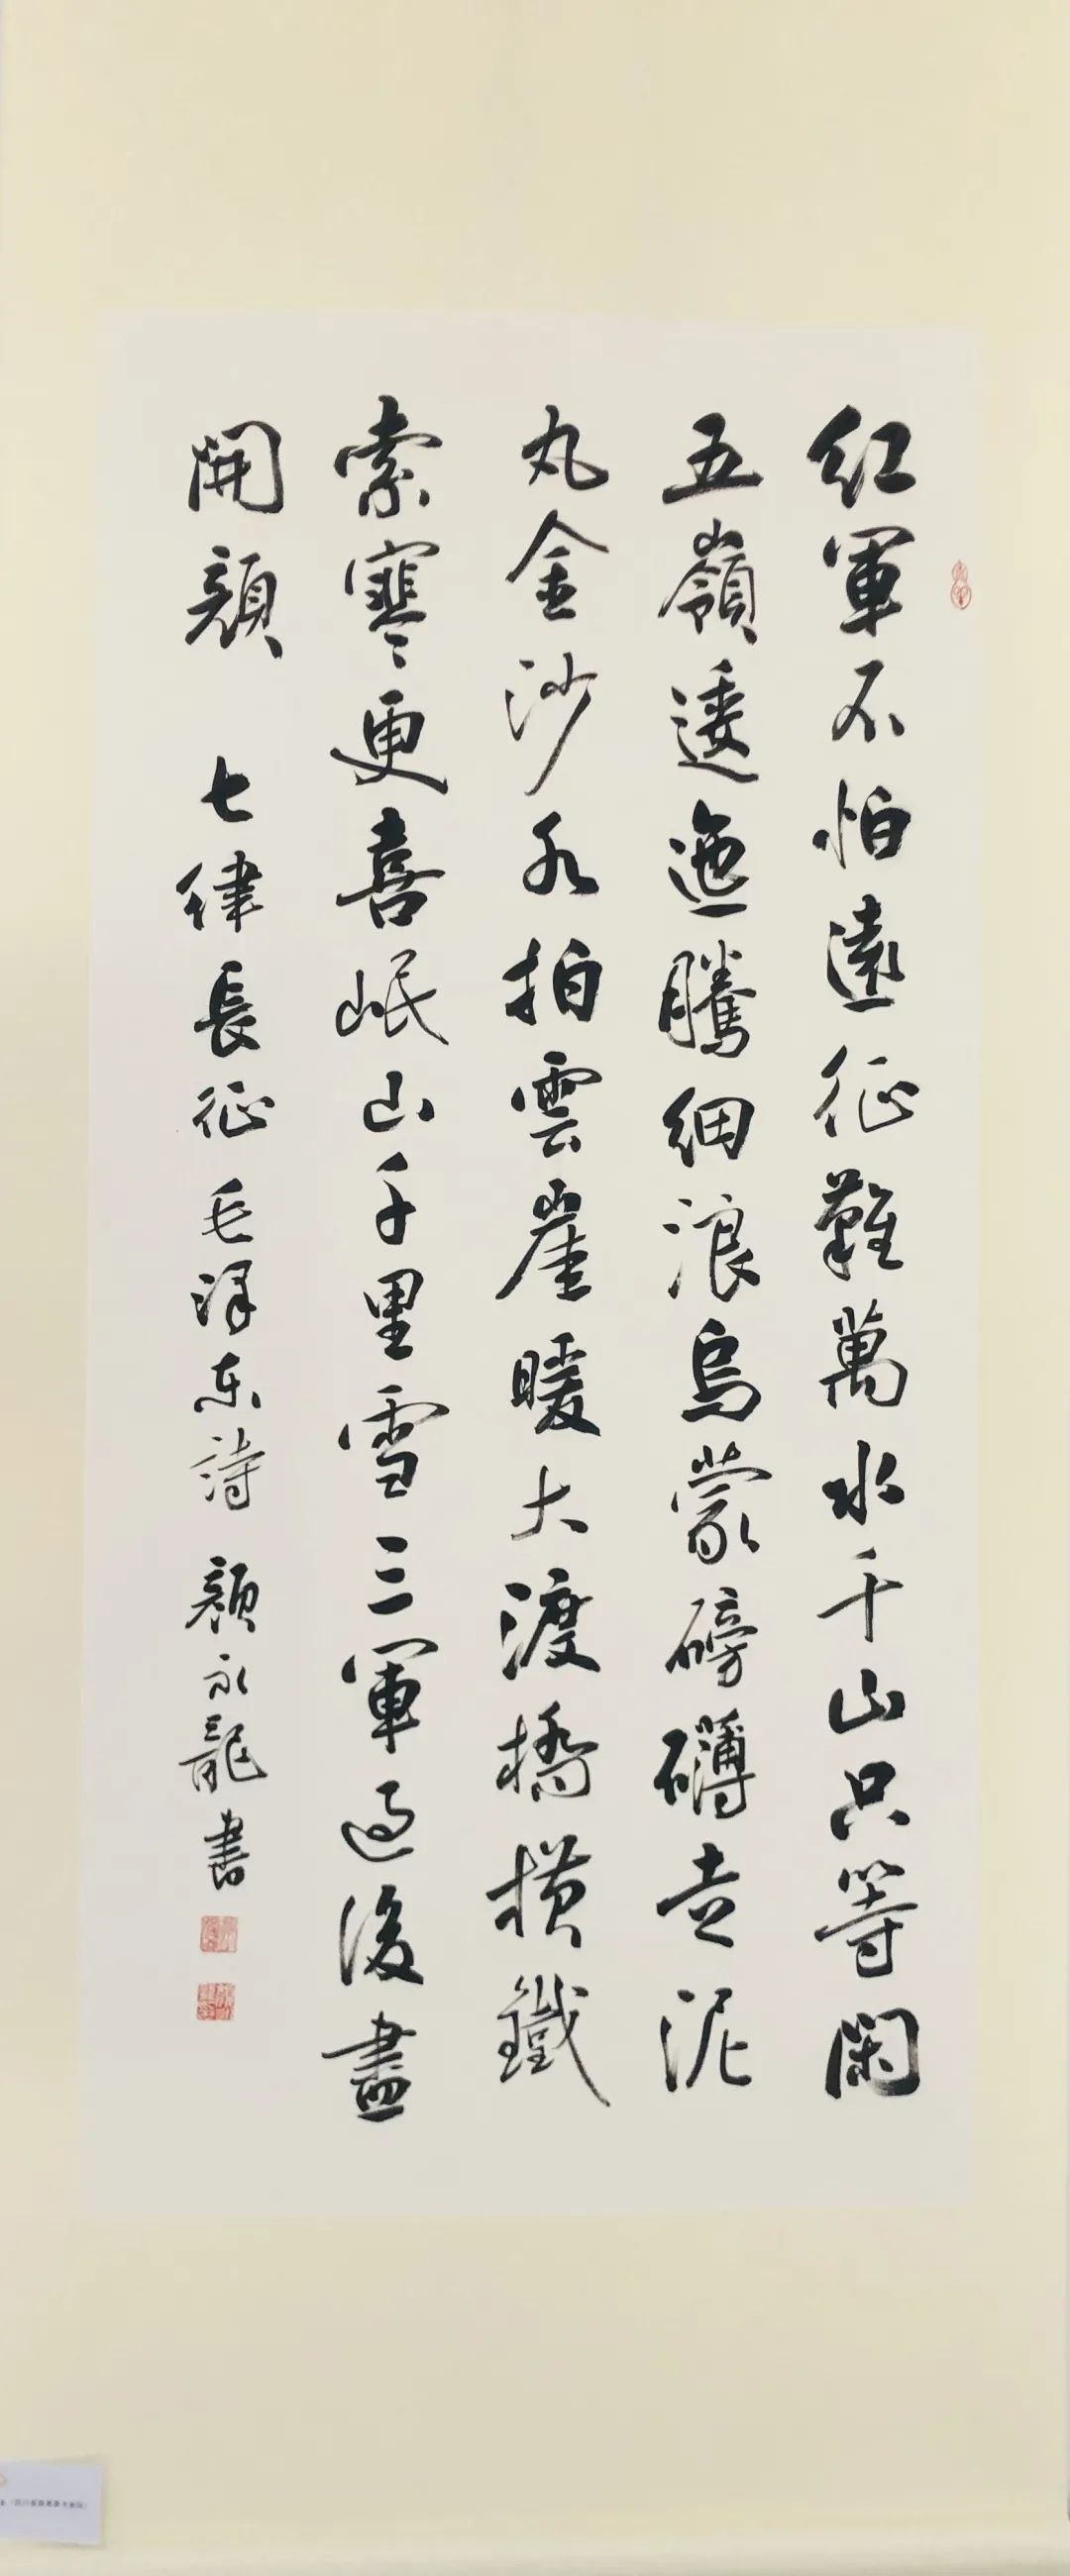 紅軍不怕遠征難萬水千山只等閑
五嶺逶迤騰細浪烏蒙磅礴走泥
丸金沙水拍雲崖暖大渡橋橫鐵
索寒更喜岷山千里雪三軍過後盡
開顏 七律長征毛澤东詩 顏永龍書